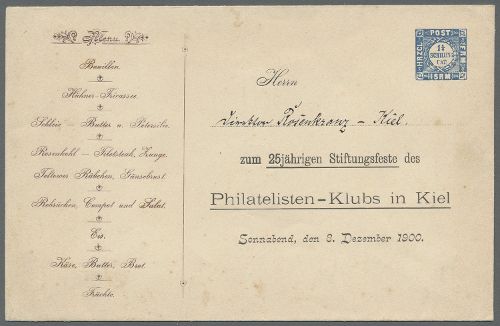 Menu
Bouillon.
Hühner-Fricassee.
Schleie – Butter u. Petersilie.
Rosenkohl – Filetsteak, Zunge.
Teltower Rübchen, Gänsebrust.
Rehrücken, Compot und Salat.
Eis.
Käse, Butter, Brot.
Früchte.
HRZGL
POST
FRM
ISRM
1¼
SCHILLING
Herrn
Direktor Rosenkranz – Kiel.
zum 25jährigen Stiftungsfeste des
Philatelisten-Klubs in Kiel
Sonnabend, den 8. Dezember 1900.